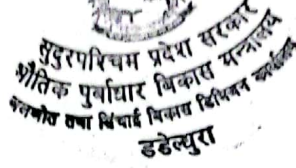 सुदूरपश्चिम प्रदेश सरकार
भौतिक पुर्वाधार विकास मन्त्रालय
जलस्रोत तथा सिंचाई विकास डिभिजन कार्यालय
डडेल्धुरा